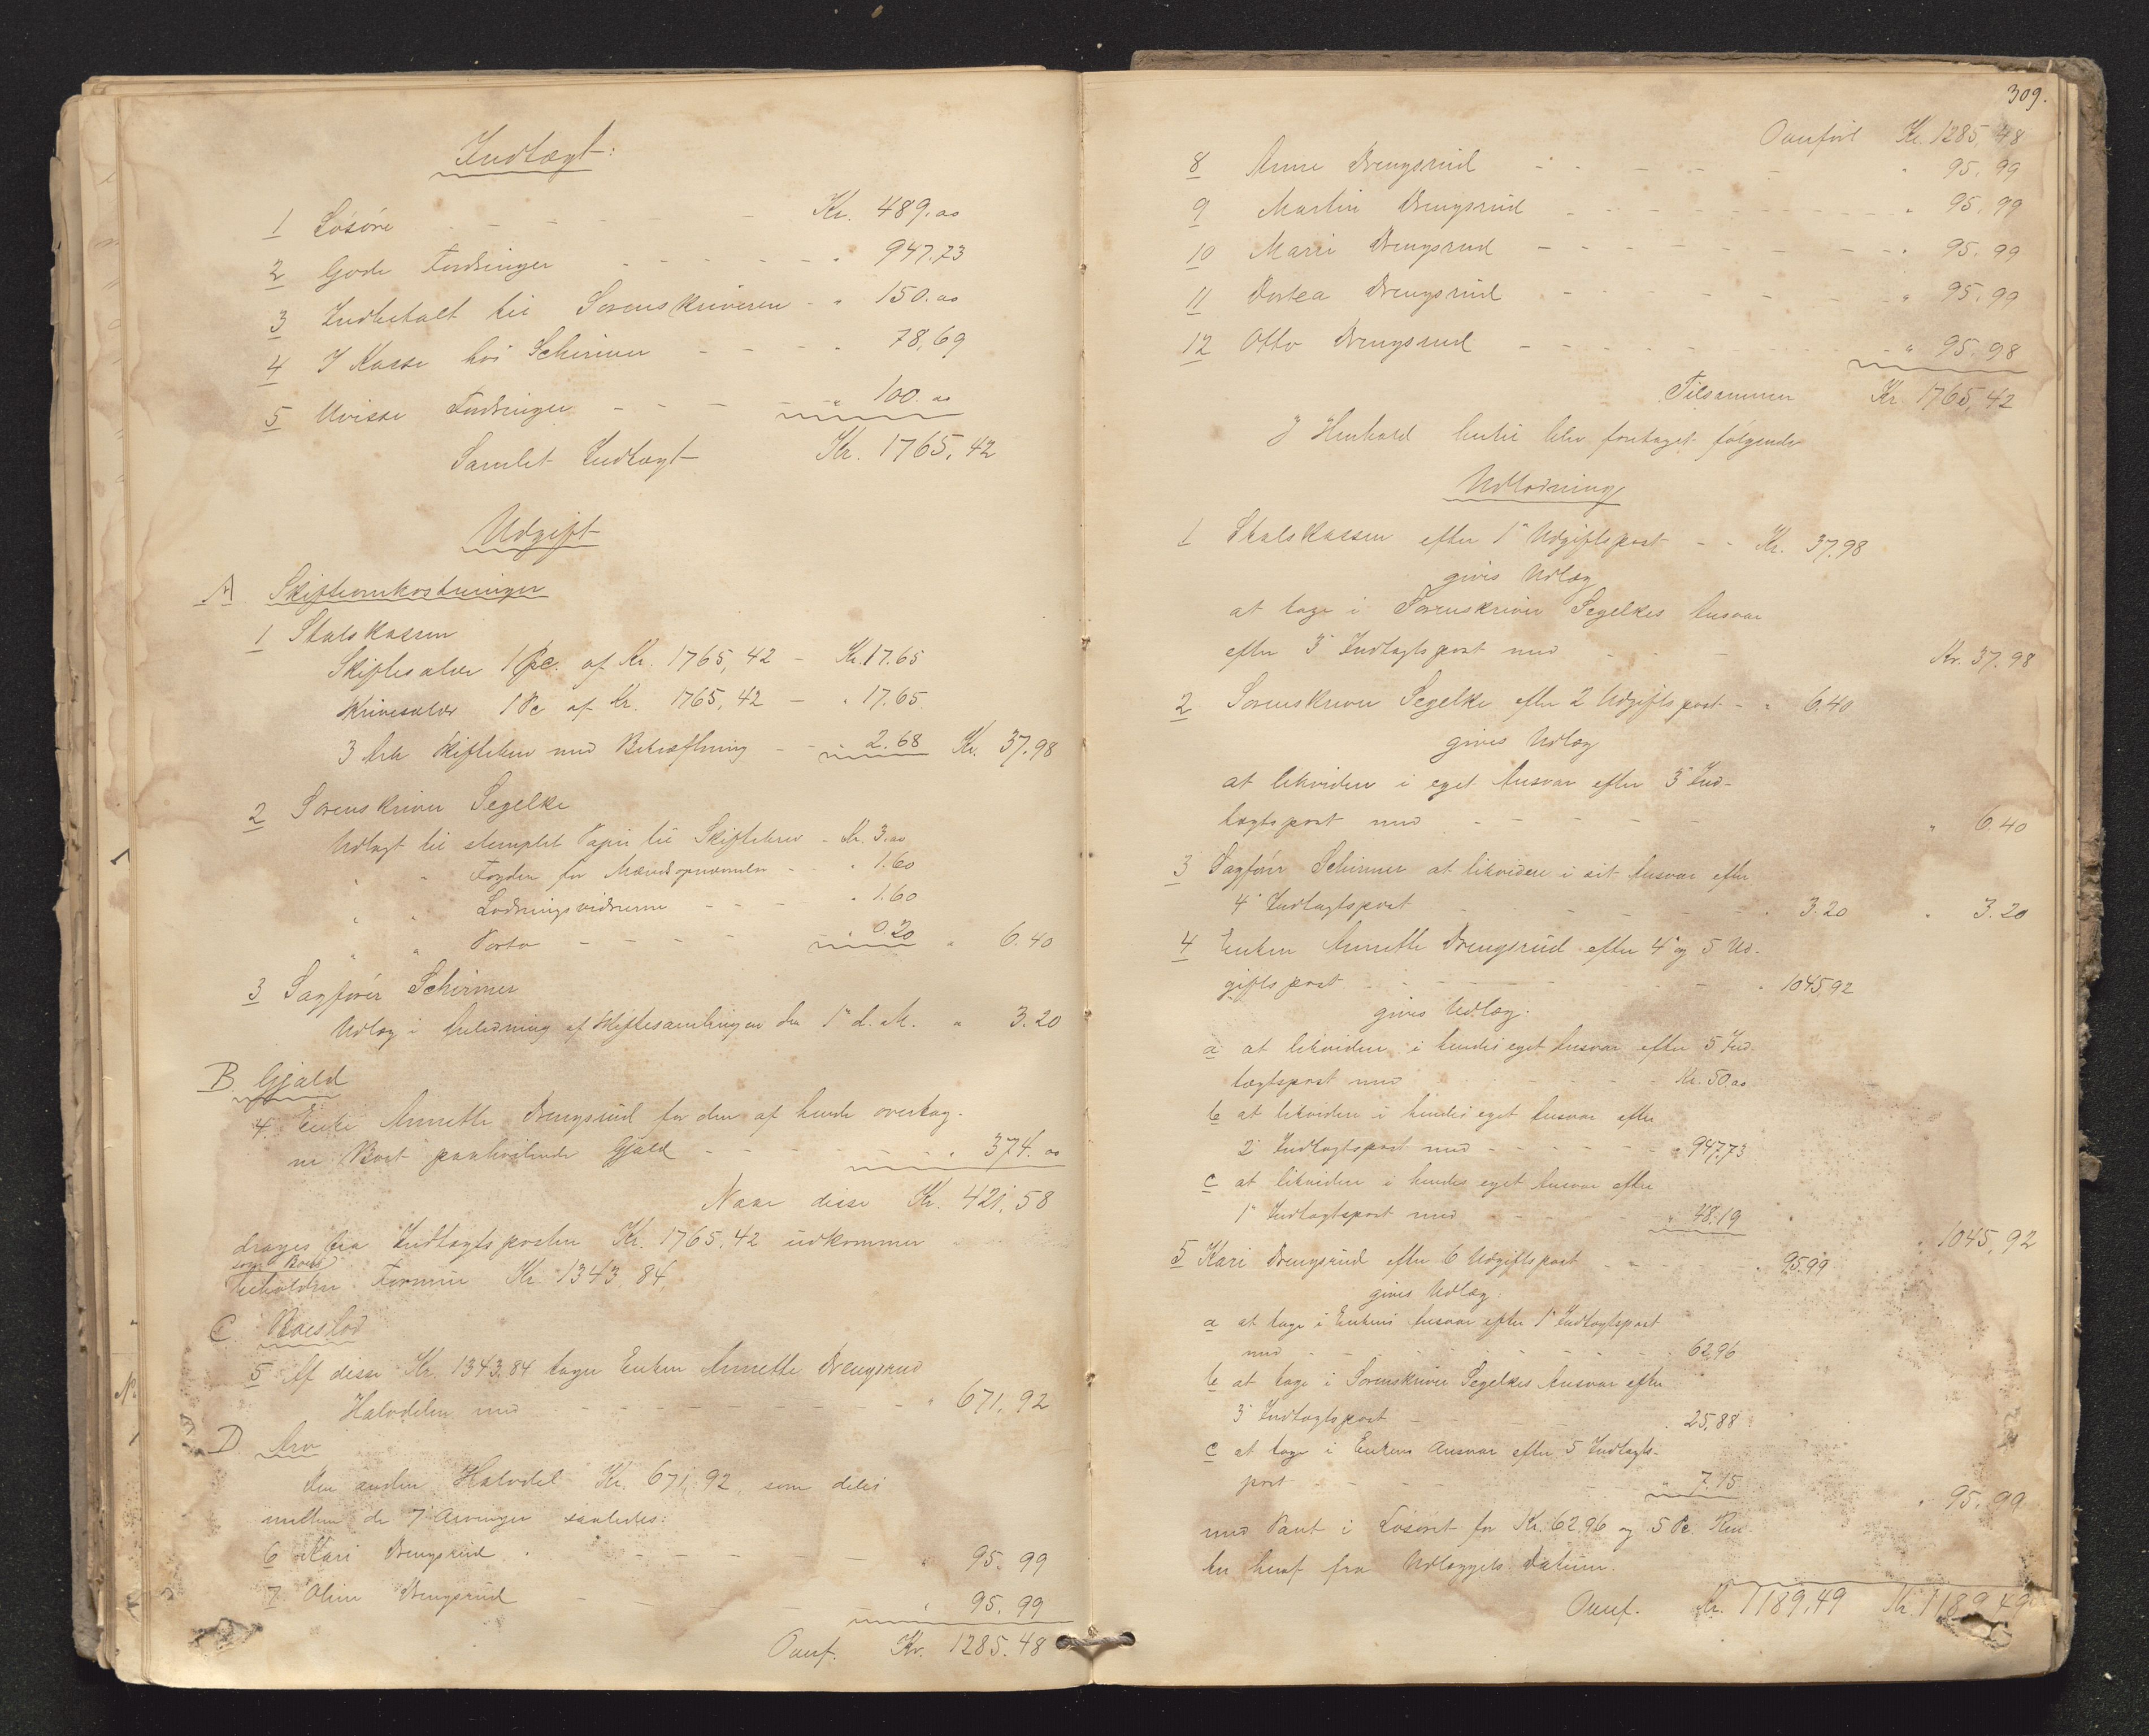 Indtægt:
1 Løsøre - - - - Kr. 489.00
2 Gode Fordringer - - - - " 947.73
3 Indbetalt til Sorenskriveren - " 150.00
4 I Kasse hos Schirmer - - - " 78,69
5 Uvisse Fordringer - - - - " 100.00
Samlet Indtægt Kr. 1765,42
Udgift
A Skifteomkostninger
1 Statskassen
Skiftesalær 1 Pc. af Kr. 1765,42 - Kr. 17.65
Skrivesalær 1 Pc af Kr. 1765,42 - " 17.65.
3 Ark Skiftebrev med Bekræftning - - " 2.68 Kr. 37.98
2 Sorenskriver Segelke
Udlagt til stemplet Papir til Skiftebrev - Kr. 3.00
" " Fogden for Mændsopnævnelse - - " 1.60
" " Lodningsvidnerne - - - " 1.60
" " Porto - - - - " 0.20 " 6.40
3 Sagfører Schirmer
Udlæg i Anledning af Skiftesamlingen den 1' d. M. " 3.20
B. Gjæld
4. Enke Annette Drengsrud for den af hende overtag-
ne Boet paahvilende Gjæld - - - - - " 374.00
Naar disse Kr. 421,58
drages fra Indtægtsposten Kr. 1765,42 udkommer
som Boets
beholdne Formue Kr. 1343,84,
C. Boeslod
5 Af disse Kr. 1343,84 tager Enken Annette Drengsrud
Halvdelen med - - - - - - - " 671,92
D. Arv
Den anden Halvdel Kr. 671,92, som deles
mellem de 7 Arvinger saaledes:
6 Kari Drengsrud - - - - - " 95.99
7 Oline Drengsrud - - - - " 95.99
Overf. Kr. 1285.48
309.
Overført Kr. 1285,48
8 Anne Drengsrud - - - - - " 95.99
9 Martin Drengsrud - - - - - " 95.99
10 Marie Drengsrud - - - - - " 95.99
11 Dortea Drengsrud - - - - - " 95.99
12 Otto Drengsrud - - - - - " 95.98
Tilsammen Kr. 1765,42
I Henhold hertil blev foretaget følgende
Udlodning
1 Statskassen efter 1' Udgiftspost - - Kr. 37.98
gives Udlæg
at tage i Sorenskriver Segelkes Ansvar
efter 3' Indtægtspost med - - - Kr. 37.98
2 Sorenskriver Segelke efter 2 Udgiftspost - " 6.40
gives Udlæg
at likvidere i eget Ansvar efter 3' Ind-
tægtspost med - - - - - " 6.40
3 Sagfører Schirmer at likvidere i sit Ansvar efter
4' Indtægtspost - - - - - " 3.20 " 3.20
4 Enken Annette Drengsrud efter 4' og 5 Ud-
giftspost - - - - - " 1045,92
gives Udlæg:
a at likvidere i hendes eget Ansvar efter 5 Ind-
tægtspost med - - - - Kr. 50.00
b at likvidere i hendes eget Ansvar efter
2' Indtægtspost med - - - - - " 947.73
c at likvidere i hendes eget Ansvar efter
1' Indtægtspost med - - - - " 48.19 " 1045,92
5 Kari Drengsrud efter 6 Udgiftspost - - - - " 95.99
gives Udlæg:
a at tage i Enkens Ansvar efter 1' Indtægtspost
med - - - - - - - " 62.96
b at tage i Sorenskriver Segelkes Ansvar efter
3' Indtægtspost - - - - - " 25,88
c at tage i Enkens Ansvar efter 5 Indtægts-
post - - - - - " 7.15 " 95.99
med Pant i Løsøret for Kr. 62.96 og 5 Pc. Ren-
ter heraf fra Udlæggets Datum.
Overf. Kr. 1189.49 Kr. 1189.49